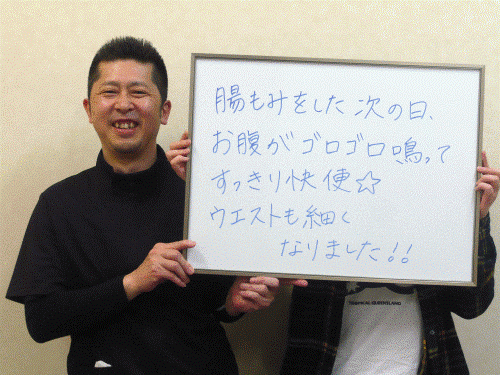 腸もみをした次の日、
お腹がゴロゴロ鳴って
すっきり快便☆
ウエストも細く
なりました!!
TROPICAL QUEENSLAND